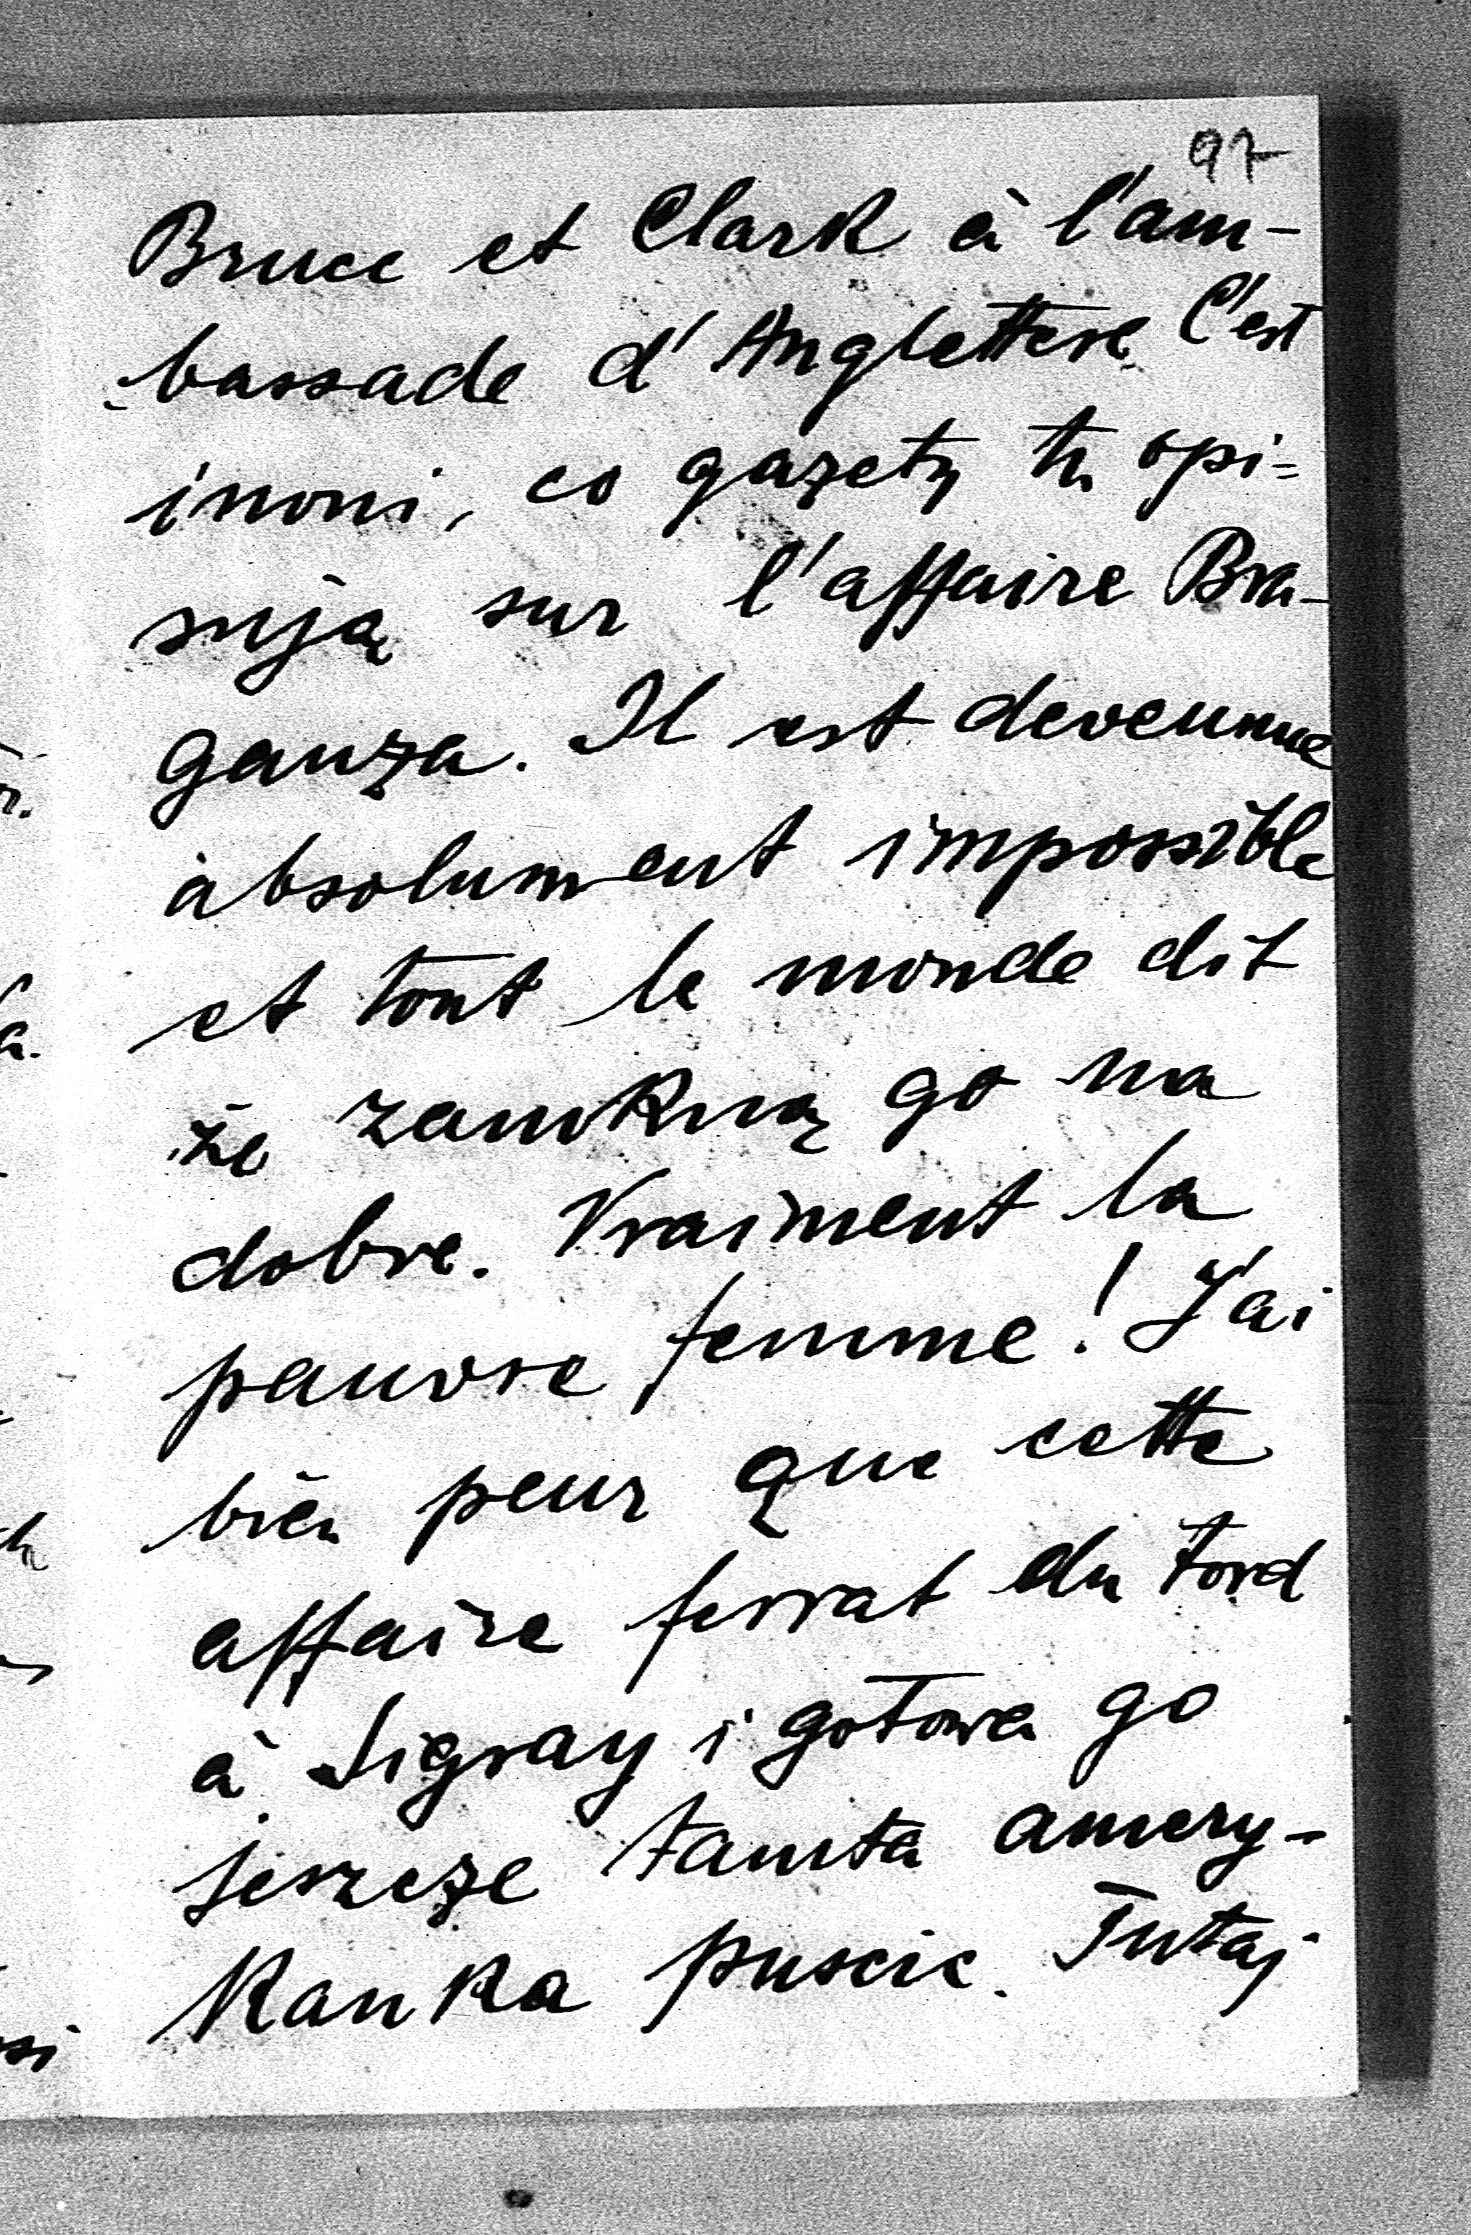 97
Bruce et Clark à l'am-
bassade d'Anglettere. C'est
inoni, co gazety tu opi=
sują sur l'affaire Bra-
ganza. Il est devenue
absolument impossible
et tout le monde dit
że zamkną go na
dobre. Vraiment la
pauvre femme! J'ai
bien peur que cette
affaire ferrat du tord
à Sigray i gotowa go
jeszcze tamta amery-
kanka puscic. Tutaj